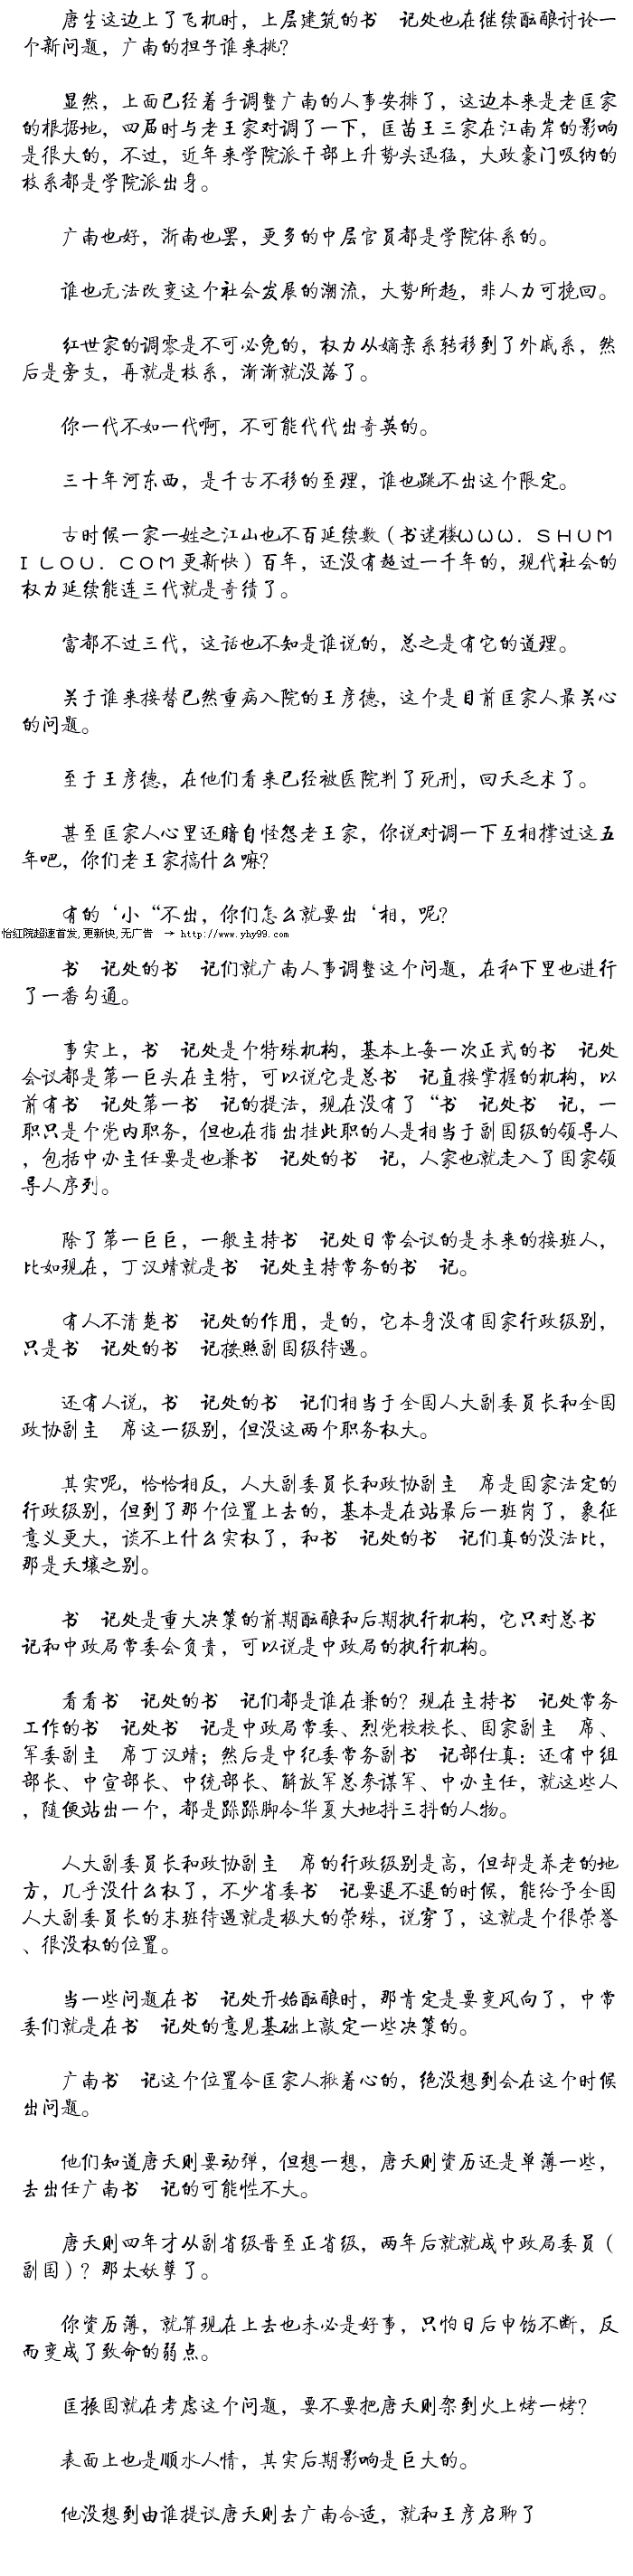 唐生这边上了飞机时，上层建筑的书　记处也在继续酝酿讨论一
个新问题，广南的担子谁来挑？
显然，上面已经着手调整广南的人事安排了，这边本来是老匡家
的根据地，四届时与老王家对调了一下，匡苗王三家在江南岸的影响
是很大的，不过，近年来学院派干部上升势头迅猛，大政豪门吸纳的
枝系都是学院派出身。
广南也好，浙南也罢，更多的中层官员都是学院体系的。
谁也无法改变这个社会发展的潮流，大势所趋，非人力可挽回。
红世家的调零是不可必免的，权力从嫡亲系转移到了外戚系，然
后是旁支，再就是枝系，渐渐就没落了。
你一代不如一代啊，不可能代代出奇英的。
三十年河东西，是千古不移的至理，谁也跳不出这个限定。
古时候一家一姓之江山也不百延续数（书迷楼ＷＷＷ．ＳＨＵＭ
ＩＬＯＵ．ＣＯＭ更新快）百年，还没有超过一千年的，现代社会的
权力延续能连三代就是奇绩了。
富都不过三代，这话也不知是谁说的，总之是有它的道理。
关于谁来接替已然重病入院的王彦德，这个是目前匡家人最关心
的问题。
至于王彦德，在他们看来已经被医院判了死刑，回天乏术了。
甚至匡家人心里还暗自怪怨老王家，你说对调一下互相撑过这五
年吧，你们老王家搞什么嘛？
有的‘小“不出，你们怎么就要出‘相，呢？
怡红院超速首发,更新快,无广告　→ http://www.yhy99.com
书　记处的书　记们就广南人事调整这个问题，在私下里也进行
了一番勾通。
事实上，书　记处是个特殊机构，基本上每一次正式的书　记处
会议都是第一巨头在主特，可以说它是总书　记直接掌握的机构，以
前有书　记处第一书　记的提法，现在没有了“书　记处书　记，一
职只是个党内职务，但也在指出挂此职的人是相当于副国级的领导人
，包括中办主任要是也兼书　记处的书　记，人家也就走入了国家领
导人序列。
除了第一巨巨，一般主持书　记处日常会议的是未来的接班人，
比如现在，丁汉靖就是书　记处主持常务的书　记。
有人不清楚书　记处的作用，是的，它本身没有国家行政级别，
只是书　记处的书　记按照副国级待遇。
还有人说，书　记处的书　记们相当于全国人大副委员长和全国
政协副主　席这一级别，但没这两个职务权大。
其实呢，恰恰相反，人大副委员长和政协副主　席是国家法定的
行政级别，但到了那个位置上去的，基本是在站最后一班岗了，象征
意义更大，谈不上什么实权了，和书　记处的书　记们真的没法比，
那是天壤之别。
书　记处是重大决策的前期酝酿和后期执行机构，它只对总书
记和中政局常委会负责，可以说是中政局的执行机构。
看看书　记处的书　记们都是谁在兼的？现在主持书　记处常务
工作的书　记处书　记是中政局常委、烈党校校长、国家副主　席、
军委副主　席丁汉靖；然后是中纪委常务副书　记部仕真：还有中组
部长、中宣部长、中统部长、解放军总参谋军、中办主任，就这些人
，随便站出一个，都是跺跺脚令华夏大地抖三抖的人物。
人大副委员长和政协副主　席的行政级别是高，但却是养老的地
方，几乎没什么权了，不少省委书　记要退不退的时候，能给予全国
人大副委员长的末班待遇就是极大的荣殊，说穿了，这就是个很荣誉
、很没权的位置。
当一些问题在书　记处开始酝酿时，那肯定是要变风向了，中常
委们就是在书　记处的意见基础上敲定一些决策的。
广南书　记这个位置令匡家人揪着心的，绝没想到会在这个时候
出问题。
他们知道唐天则要动弹，但想一想，唐天则资历还是单薄一些，
去出任广南书　记的可能性不大。
唐天则四年才从副省级晋至正省级，两年后就就成中政局委员（
副国）？那太妖孽了。
你资历薄，就算现在上去也未必是好事，只怕日后申饬不断，反
而变成了致命的弱点。
匡振国就在考虑这个问题，要不要把唐天则架到火上烤一烤？
表面上也是顺水人情，其实后期影响是巨大的。
他没想到由谁提议唐天则去广南合适，就和王彦启聊了